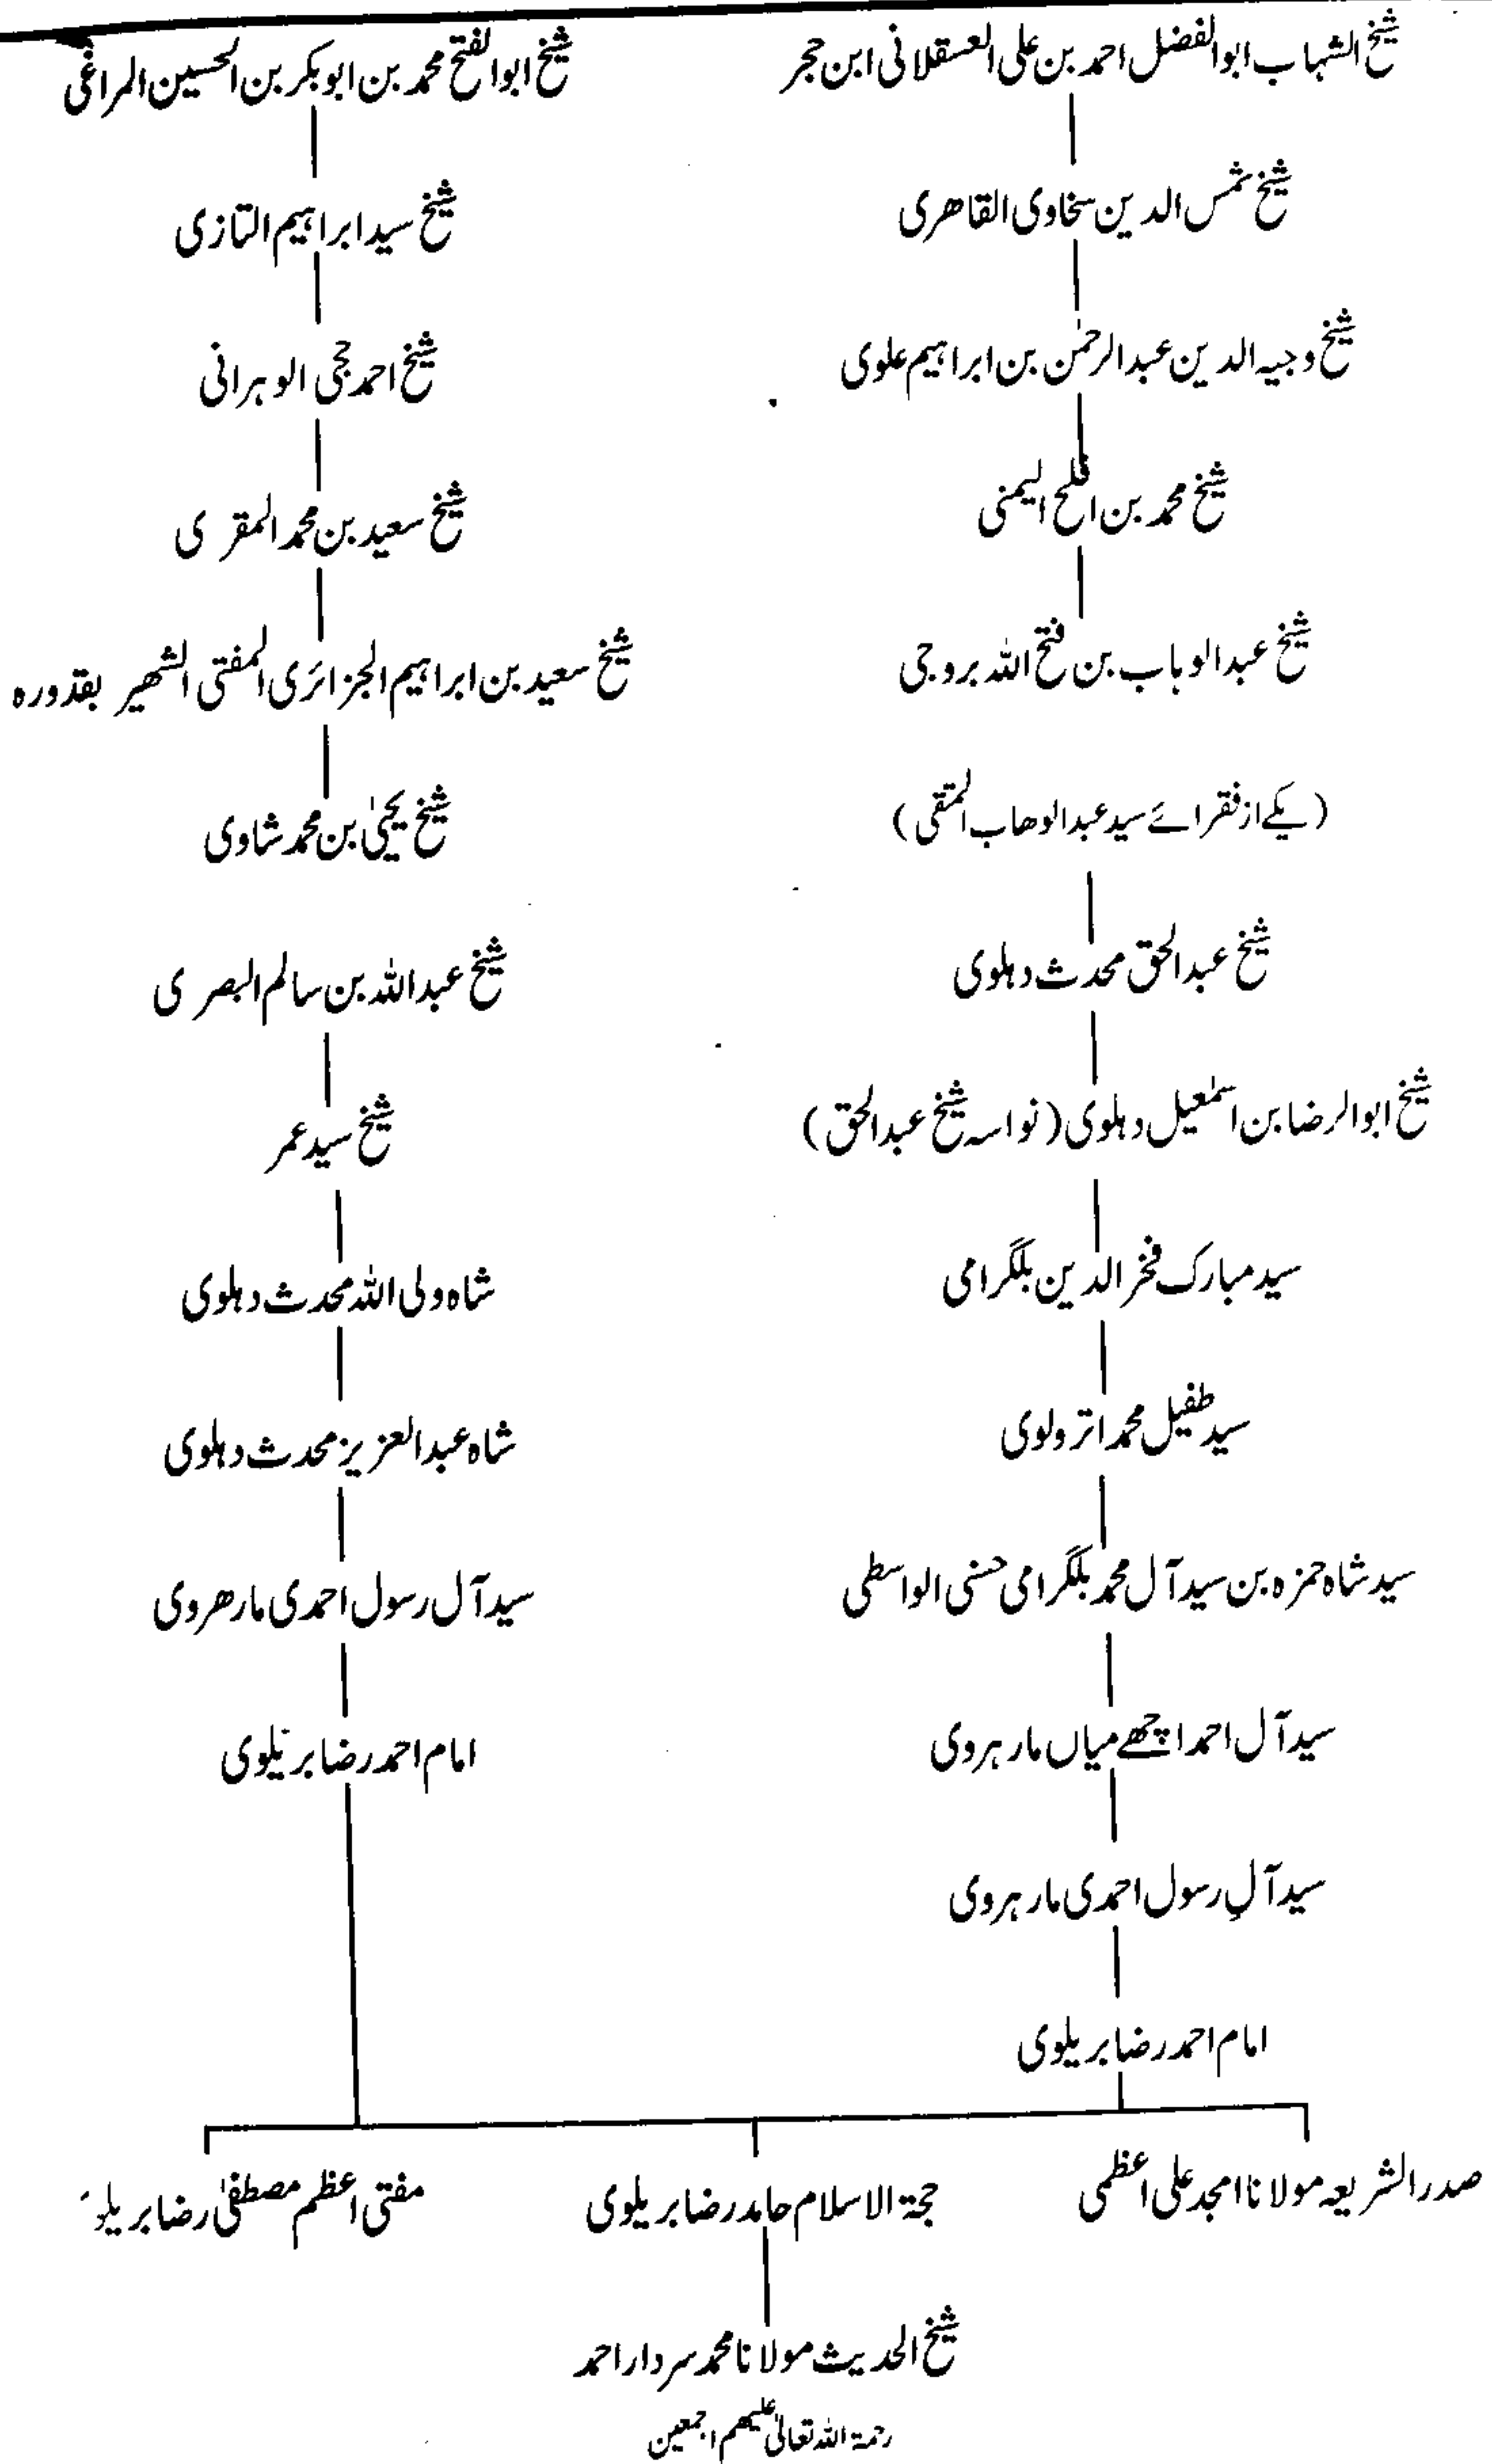 شیخ الشہاب ابوالفضل احمد بن علی العسقلانی ابن حجر
شیخ شمس الدین سخاوی القاھری
شیخ وجیہ الدین عبدالرحمٰن بن ابراہیم علوی
شیخ محمد بن افلح الیمنی
شیخ عبدالوہاب بن فتح اللہ بروجی
(یکے از فقرائے سید عبدالوھاب المتقی)
شیخ عبدالحق محدث دہلوی
شیخ ابوالرضا بن اسمٰعیل دہلوی (نواسہ شیخ عبدالحق)
سید مبارک فخر الدین بلگرامی
سید طفیل محمد اترولوی
سید شاہ حمزہ بن سید آل محمد بلگرامی حسنی الواسطی
سید آل احمد اچھے میاں مارہروی
سید آلِ رسول احمدی مارہروی
امام احمد رضا بریلوی
شیخ ابوالفتح محمد بن ابوبکر بن الحسین المراغی
شیخ سید ابراہیم التازی
شیخ احمد حجی الوہرانی
شیخ سعید بن محمد المقری
شیخ سعید بن ابراہیم الجزائری المفتی الشھیر بقدورہ
شیخ یحییٰ بن محمد شاوی
شیخ عبداللہ بن سالم البصری
شیخ سید عمر
شاہ ولی اللہ محدث دہلوی
شاہ عبدالعزیز محدث دہلوی
سید آل رسول احمدی مارھروی
امام احمد رضا بریلوی
صدر الشریعہ مولانا امجد علی اعظمی
حجۃ الاسلام حامد رضا بریلوی
مفتی اعظم مصطفیٰ رضا
شیخ الحدیث مولانا محمد سردار احمد
رحمۃ اللہ تعالیٰ علیھم اجمعین